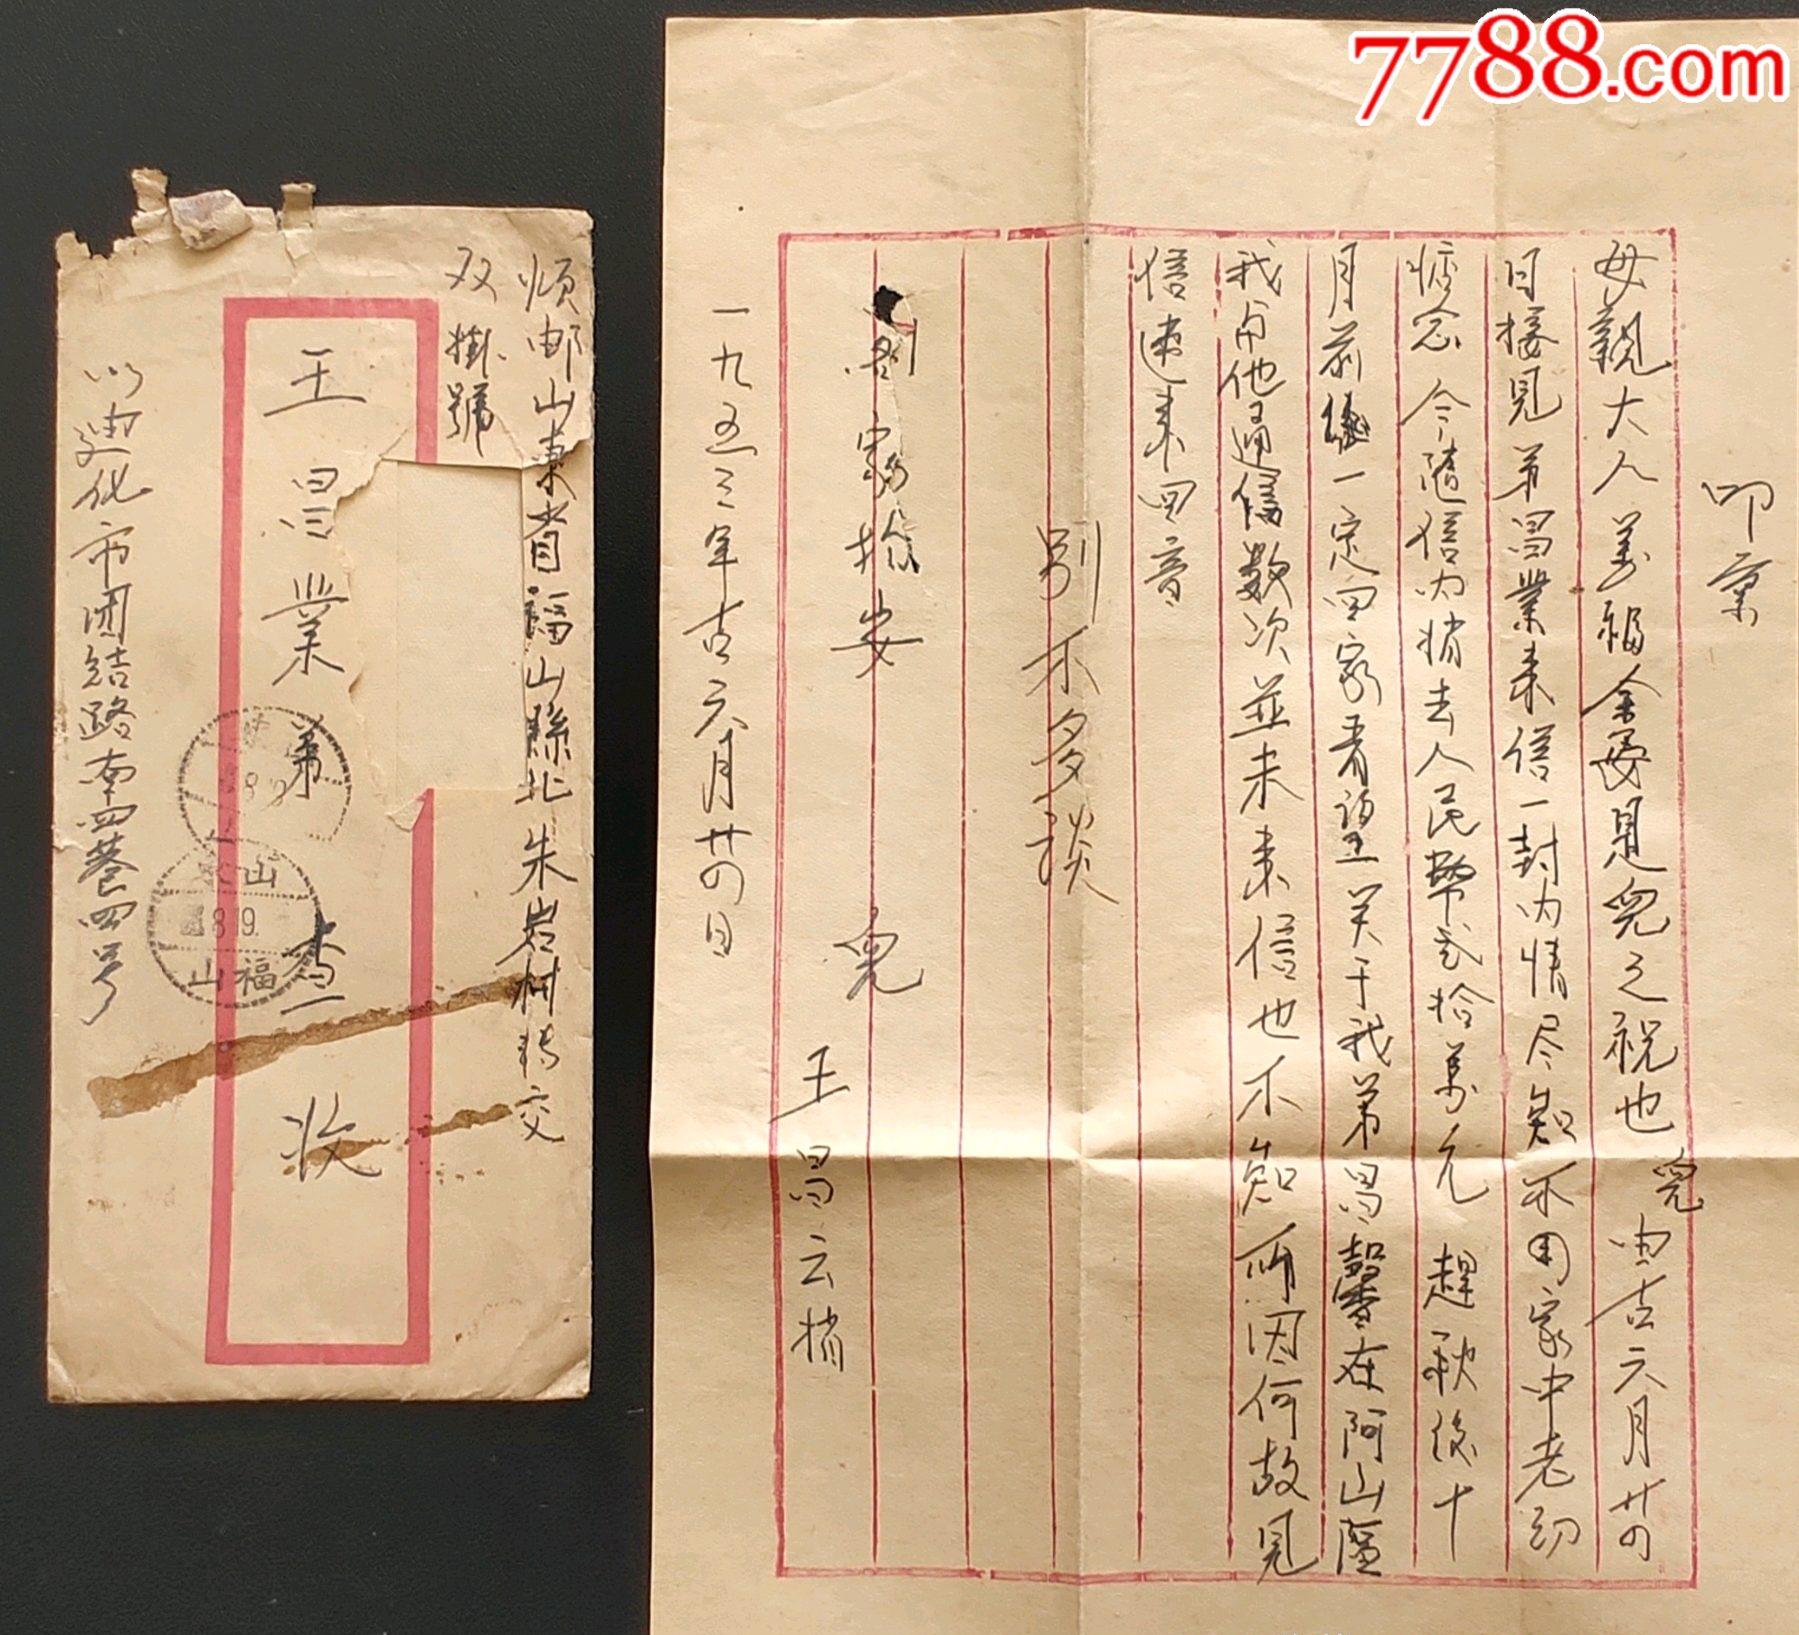 7788.com
顺邮山东省福山縣北朱岩村转交
双掛號
王昌業弟 查收
迪化市团结路南四巷四号
山
8 9
福山
叩禀
母親大人万福金安是兒之祝也 兒由古六月廿四
日接見弟昌業来信一封内情尽知不用家中老幼
惦念今隨信内捎去人民幣弍拾万元 趕秋後十
月前後一定回家看望关于我弟昌馨在阿山區
我与他通信数次並未来信也不知所因何故見
信速来回音
别不多談
合家均安
兒 王昌云捎
一九五三年古六月廿四日